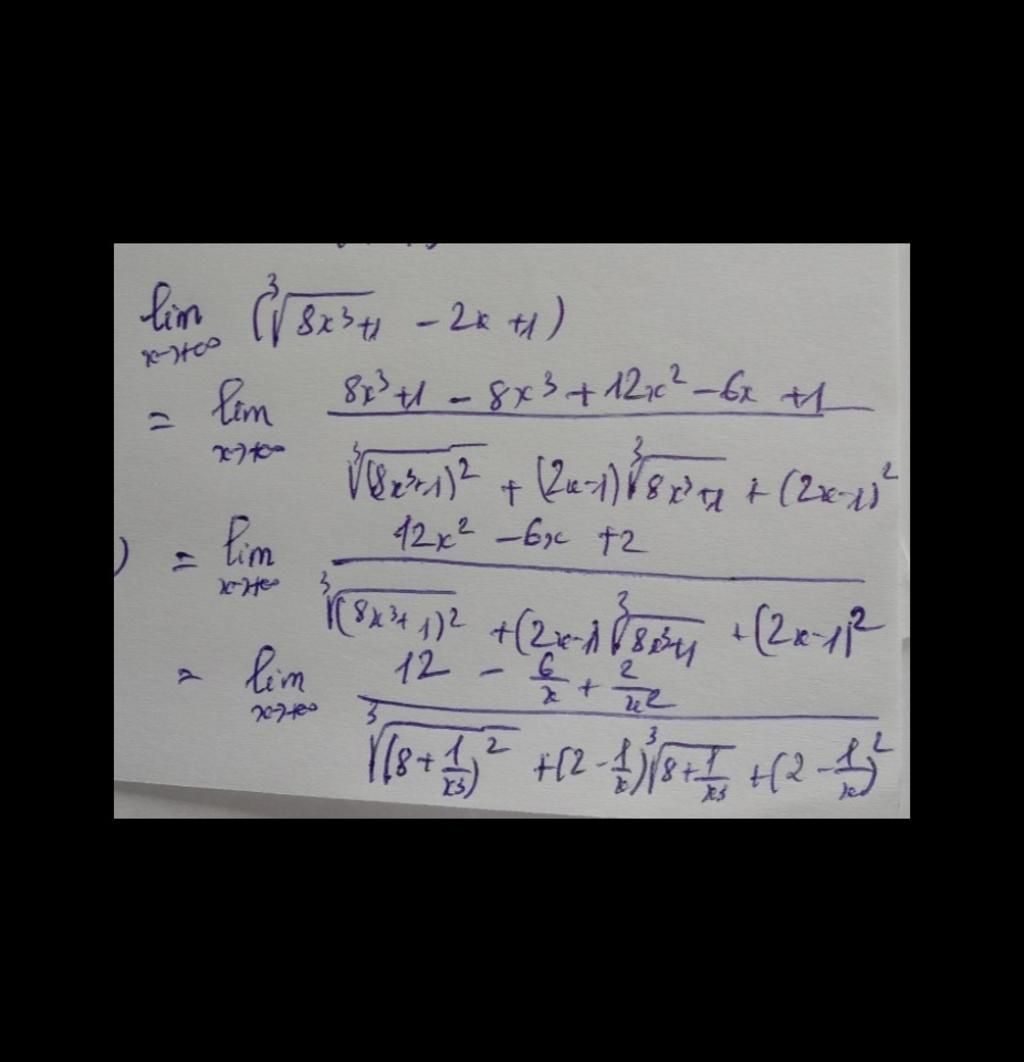 lim x→+∞ (∛(8x³+1) - 2x + 1)
= lim x→+∞ (8x³+1 - 8x³ + 12x² - 6x + 1) / (∛((8x³+1)²) + (2x-1)∛(8x³+1) + (2x-1)²)
) = lim x→+∞ (12x² - 6x + 2) / (∛((8x³+1)²) + (2x-1)∛(8x³+1) + (2x-1)²)
= lim x→+∞ (12 - 6/x + 2/x²) / (∛((8 + 1/x³)²) + (2 - 1/x)∛(8 + 1/x³) + (2 - 1/x)²)